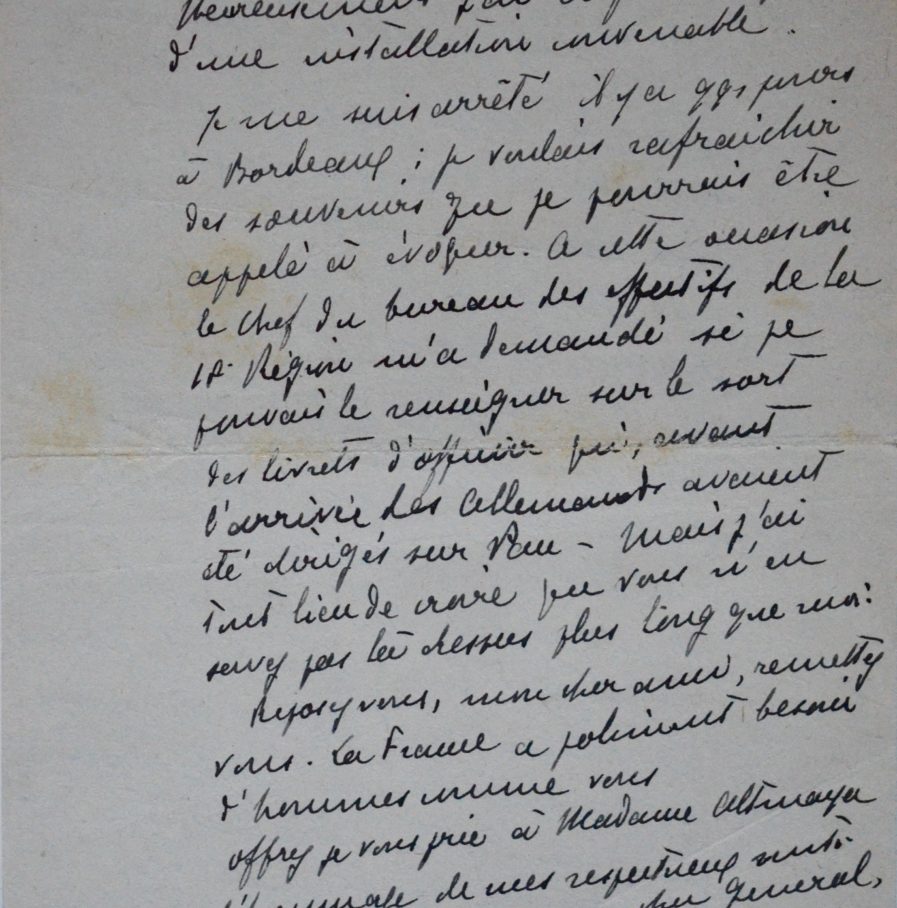 Heureusement
d'une installation convenable.
Je me suis arrêté il y a qqs jours
à Bordeaux ; je voulais rafraichir
des souvenirs que je pourrais être
appelé à évoquer. A cette occasion
le chef du bureau des effectifs de la
18e Région m'a demandé si je
pouvais le renseigner sur le sort
des livrets d'officier qui, avant
l'arrivée des Allemands avaient
été dirigés sur Pau - Mais j'ai
tout lieu de croire que vous n'en
savez pas là dessus plus long que moi.
Reposez vous, mon cher ami, remettez
vous. La France a joliment besoin
d'hommes comme vous
offrez je vous prie à Madame Altmayer
l'hommage de mes respectueux
cher Général,